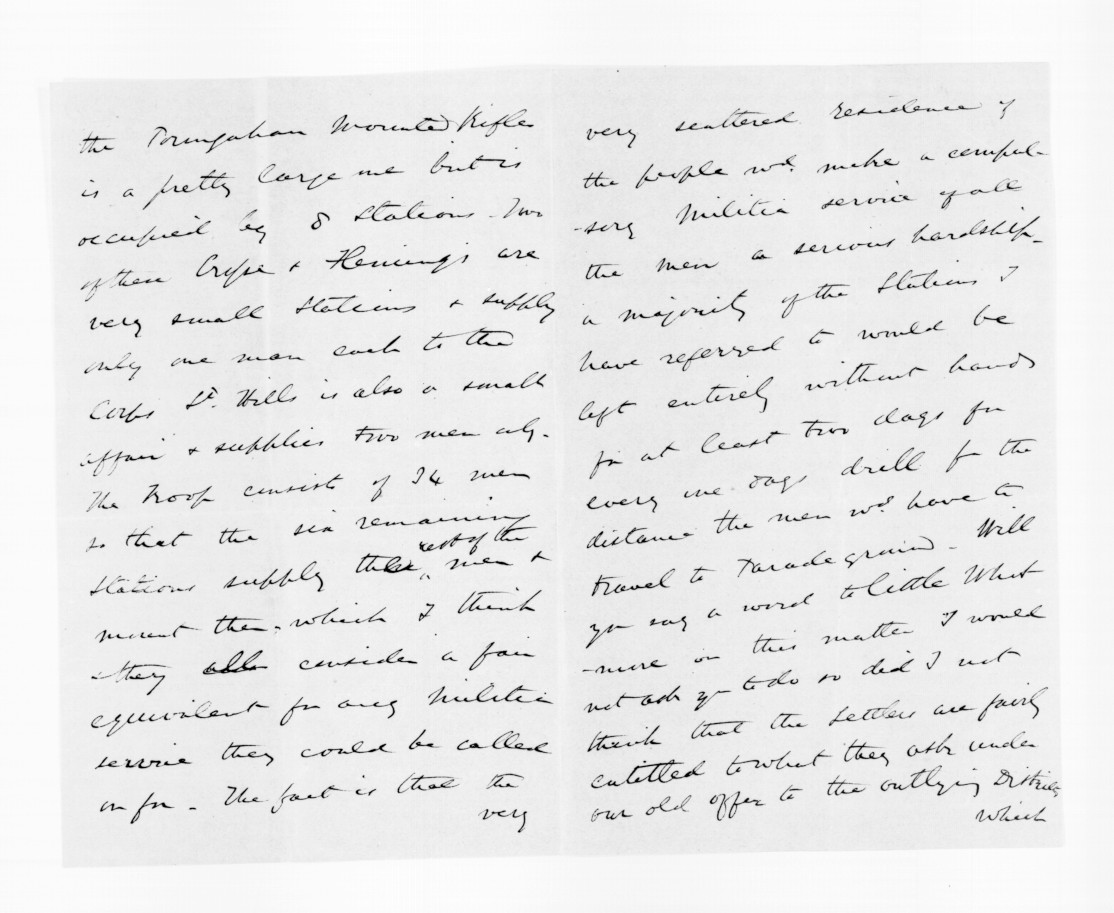 the Torngahau Mounted Rifles
is a pretty large one but is
occupied by 8 Stations. Two
of them Cripe & Hemings are
very small Stations & supply
only one man each to the
Corps St. Hills is also a small
affair & supplies two men only.
The Troop consists of 34 men
so that the six remaining
Stations supply the rest of the men &
mount them. which I think
they consider a fair
equivalent for any Militia
service they could be called
on for. The fact is that the
very
very scattered residence of
the people wd. make a compul-
-sory Militia service of all
the men a serious hardship.
a majority of the Stations I
have referred to would be
left entirely without hands
for at least two days for
every one days drill for the
distance the men wd. have to
travel to Parade ground. Will
you say a word to little Whit
-more on this matter I would
not ask you to do so did I not
think that the Settlers are fairly
entitled to what they ask under
our old offer to the outlying Districts
which